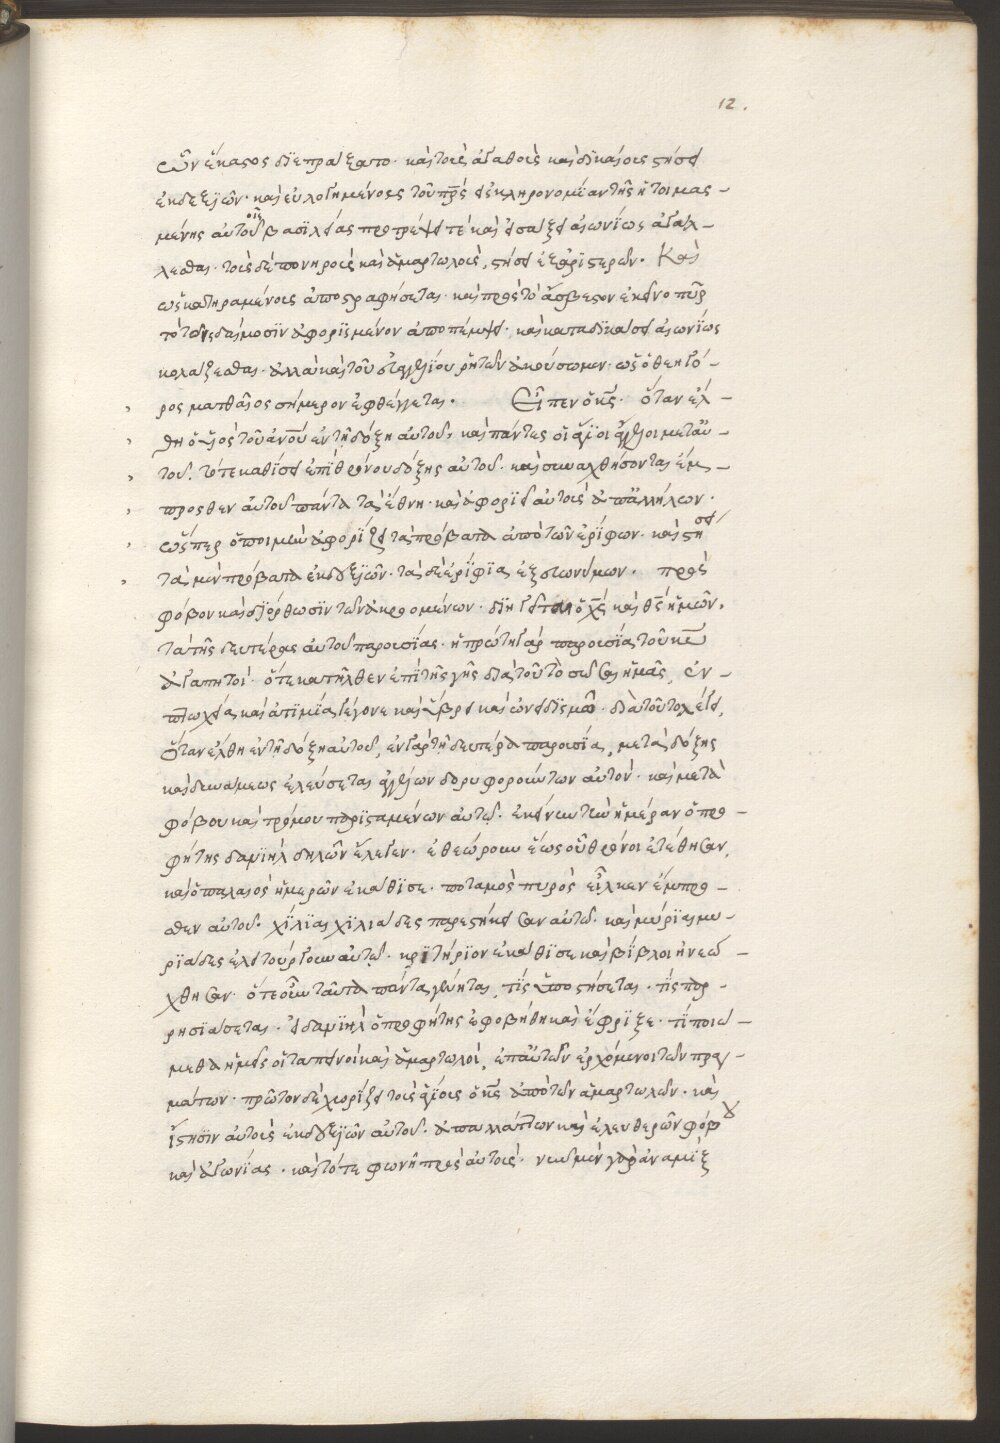 12.
ὧν ἕκαστος διεπράξατο· καὶ τοὺς ἀγαθοὺς καὶ δικαίους στήσει
ἐκ δεξιῶν· καὶ εὐλογημένους τοῦ πρς ἐκληρονομίαν τῆς ἡτοιμασ-
μένης αὐτοῖς βασιλείας προτρέψει τε καὶ εἰσάξει αἰωνίως ἀγάλ-
λεσθαι· τοὺς δὲ πονηροὺς καὶ ἁμαρτωλοὺς, στήσει ἐξ ἀριστερῶν. Καὶ
ὡς κατηραμένους ἀποστραφήσεται· καὶ πρὸς τὸ ἄσβεστον ἐκεῖνο πῦρ
τὸ τοῖς δαίμοσιν ἀφορισμένον ἀποπέμψει· καὶ καταδικάσει αἰωνίως
κολάζεσθαι· ἀλλὰ καὶ τοῦ εὐαγγελίου ῥητῶν ἀκούσωμεν· ὡς ὁ θεηγό-
ρος ματθαῖος σήμερον ἐφθέγγεται. Εἶπεν ὁ κς· ὅταν ἔλ-
θη ὁ υἱὸς τοῦ ἀνου ἐν τῆ δόξη αὐτοῦ, καὶ πάντες οἱ ἅγιοι ἄγγελοι μετ' αὐ-
τοῦ. τότε καθίσει ἐπὶ θρόνου δόξης αὐτοῦ. καὶ συναχθήσονται ἔμ-
προσθεν αὐτοῦ πάντα τὰ ἔθνη· καὶ ἀφοριεῖ αὐτοὺς ἀπ' ἀλλήλων.
ὥσπερ ὁ ποιμὴν ἀφορίζει τὰ πρόβατα ἀπὸ τῶν ἐρίφων· καὶ στήσει
τὰ μὲν πρόβατα ἐκ δεξιῶν· τὰ δὲ ἐρίφια ἐξ εὐωνύμων. πρὸς
φόβον καὶ διόρθωσιν τῶν ἀκροομένων· διηγεῖται ὁ χς καὶ θς ἡμῶν.
τὰ τῆς δευτέρας αὐτοῦ παρουσίας· ἡ πρώτη γάρ παρουσία τοῦ κυ
ἀγαπητοί· ὅτε κατῆλθεν ἐπὶ τῆς γῆς διὰ τοῦτο σῶσαι ἡμᾶς, ἐν
πτωχεία καὶ ἀτιμία γέγονε καὶ ὕβρει καὶ ὀνειδισμῶ· διὰ τοῦτο λέγει,
ὅταν ἔλθη ἐν τῆ δόξη αὐτοῦ, ἐν γὰρ τῆ δευτέρα παρουσία, μετὰ δόξης
καὶ δυνάμεως ἐλεύσεται ἀγγέλων δορυφορούντων αὐτόν· καὶ μετὰ
φόβου καὶ τρόμου παρισταμένων αὐτῶ. ἐκείνην τὴν ἡμέραν ὁ προ-
φήτης δανιὴλ δηλῶν ἔλεγεν· ἐθεώρουν ἕως οὗ θρόνοι ἐτέθησαν,
καὶ ὁ παλαιὸς ἡμερῶν ἐκάθισε· ποταμὸς πυρὸς εἷλκεν ἔμπρο-
σθεν αὐτοῦ. χίλιαι χιλιάδες παρεστήκεισαν αὐτῶ. καὶ μύριαι μυ-
ριάδες ἐλειτούργουν αὐτῶ. κριτήριον ἐκάθισε καὶ βίβλοι ἠνεώ-
χθησαν· ὅτε οὖν ταῦτα πάντα γένηται, τίς ὑποστήσεται· τίς παρ-
ρησιάσεται· εἰ δανιὴλ ὁ προφήτης ἐφοβήθη καὶ ἔφριξε· τί ποιώ-
μεθα ἡμεῖς οἱ ταπεινοὶ καὶ ἁμαρτωλοί, ἐπ' αὐτῶν ἐρχόμενοι τῶν πραγ-
μάτων· πρῶτον δὲ χωρίζει τοὺς ἁγίους ὁ κς ἀπὸ τῶν ἁμαρτωλῶν· καὶ
ἵστησιν αὐτοὺς ἐκ δεξιῶν αὐτοῦ. ἀπαλλάττων καὶ ἐλευθερῶν φόβου
καὶ ἀγωνίας. καὶ τότε φωνὴ πρὸς αὐτοὺς· νῦν μὲν γὰρ ἀναμὶξ